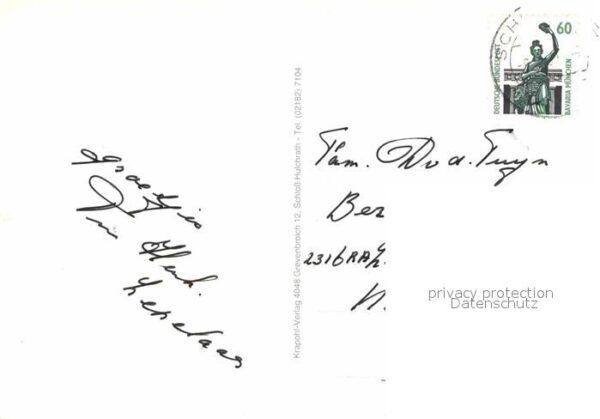 Groetjes
Henk
60
DEUTSCHE BUNDESPOST
BAVARIA MÜNCHEN
SCH
Krapohl-Verlag 4048 Grevenbroich 12, Schloß Hülchrath - Tel. (02182) 7104
Fam. Duyn
Ber
2316RA
privacy protection
Datenschutz